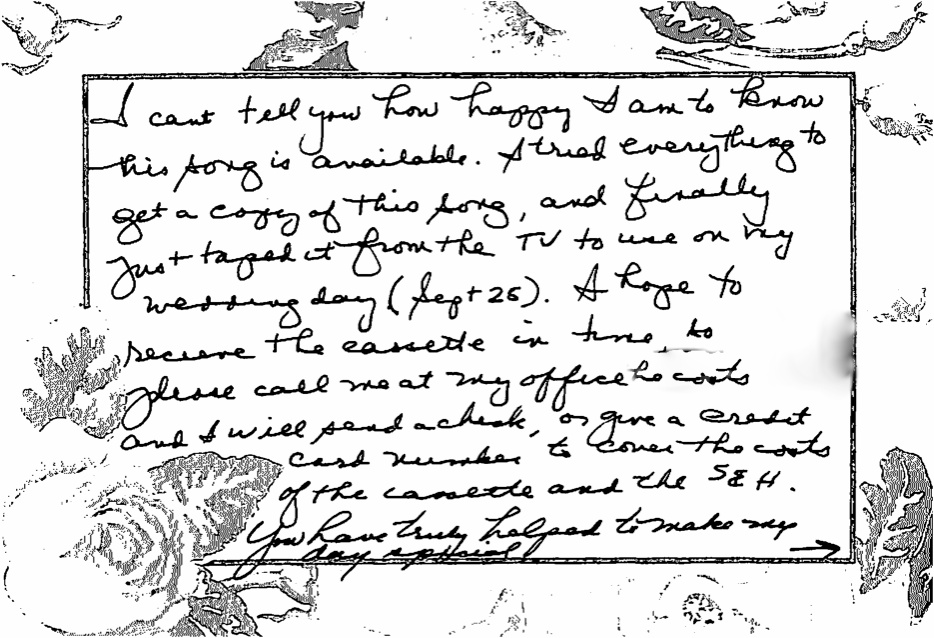 I can't tell you how happy I am to know
this song is available. I tried everything to
get a copy of this song, and finally
just taped it from the TV to use on my
wedding day (Sept 25). I hope to
receive the cassette in time, so
please call me at my office costs
and I will send a check, or give a credit
card number to cover the costs
of the cassette and the S&H.
You have truly helped to make my
day special